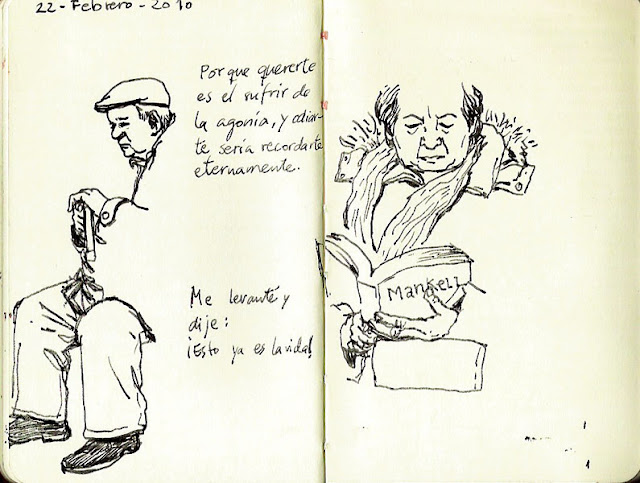 22-Febrero-2010
Porque quererte
es el sufrir de
la agonía, y odiar-
te sería recordarte
eternamente.
Me levanté y
dije:
¡Esto ya es la vida!
Mankell